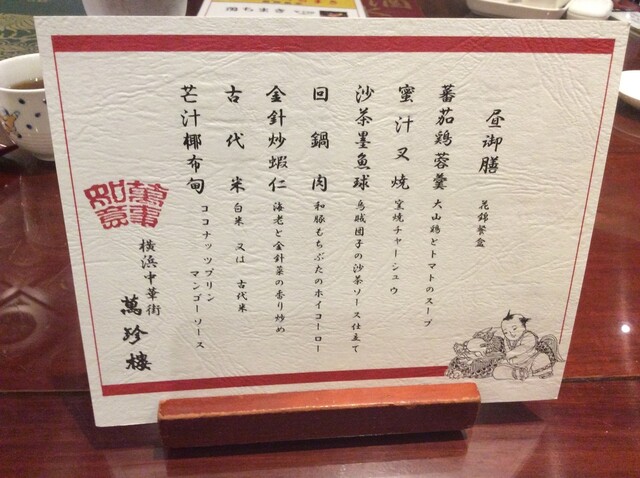 昼御膳 花錦餐盒
蕃茄鶏蓉羹 大山鶏とトマトのスープ
蜜汁叉焼 窯焼チャーシュウ
沙茶墨魚球 烏賊団子の沙茶ソース仕立て
回鍋肉 和豚もちぶたのホイコーロー
金針炒蝦仁 海老と金針菜の香り炒め
古代米 白米 又は 古代米
芒汁椰布甸 ココナッツプリン
マンゴーソース
萬事
如意
横浜中華街
萬珍樓